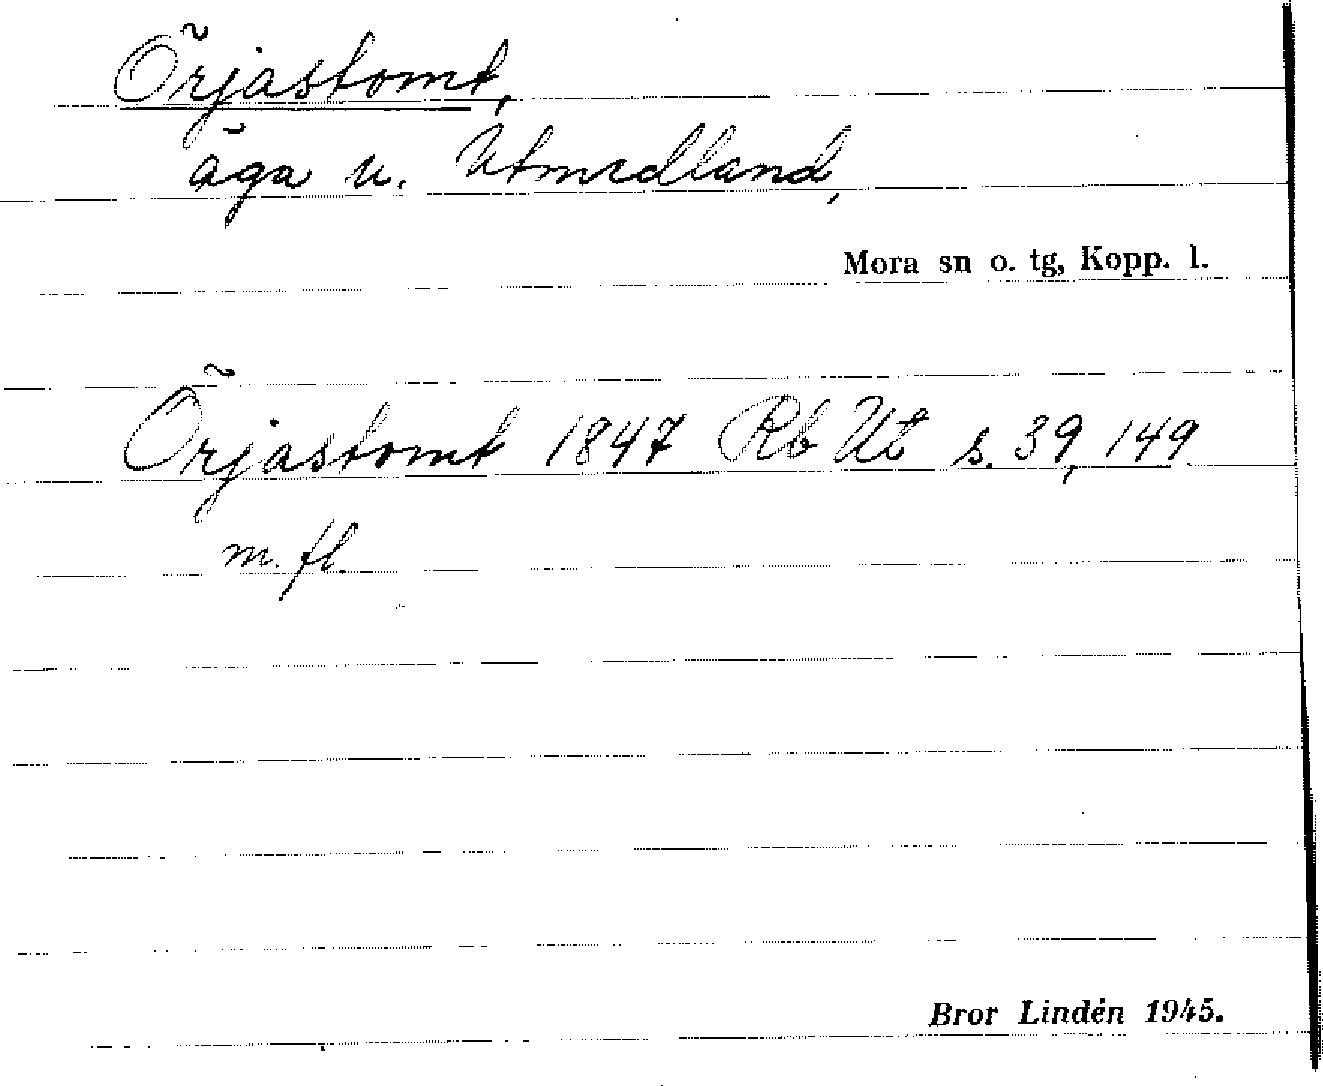 Örjastomt,
äga u. Utmedland,
Mora sn o. tg, Kopp. l.
Örjastomt 1847 Rb Ut s. 39, 149
m. fl.
Bror Lindén 1945.